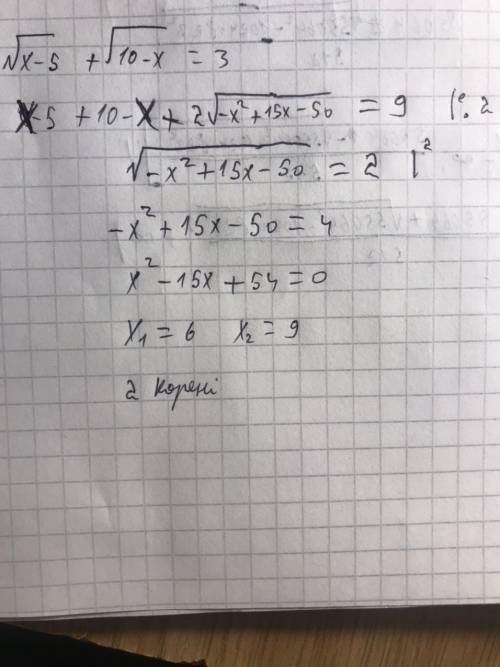 √x-5 + √10-x = 3
x-5 + 10-x + 2√-x²+15x-50 = 9 |: 2
√-x²+15x-50 = 2 |²
-x²+15x-50=4
x²-15x+54=0
x₁=6 x₂=9
2 корені